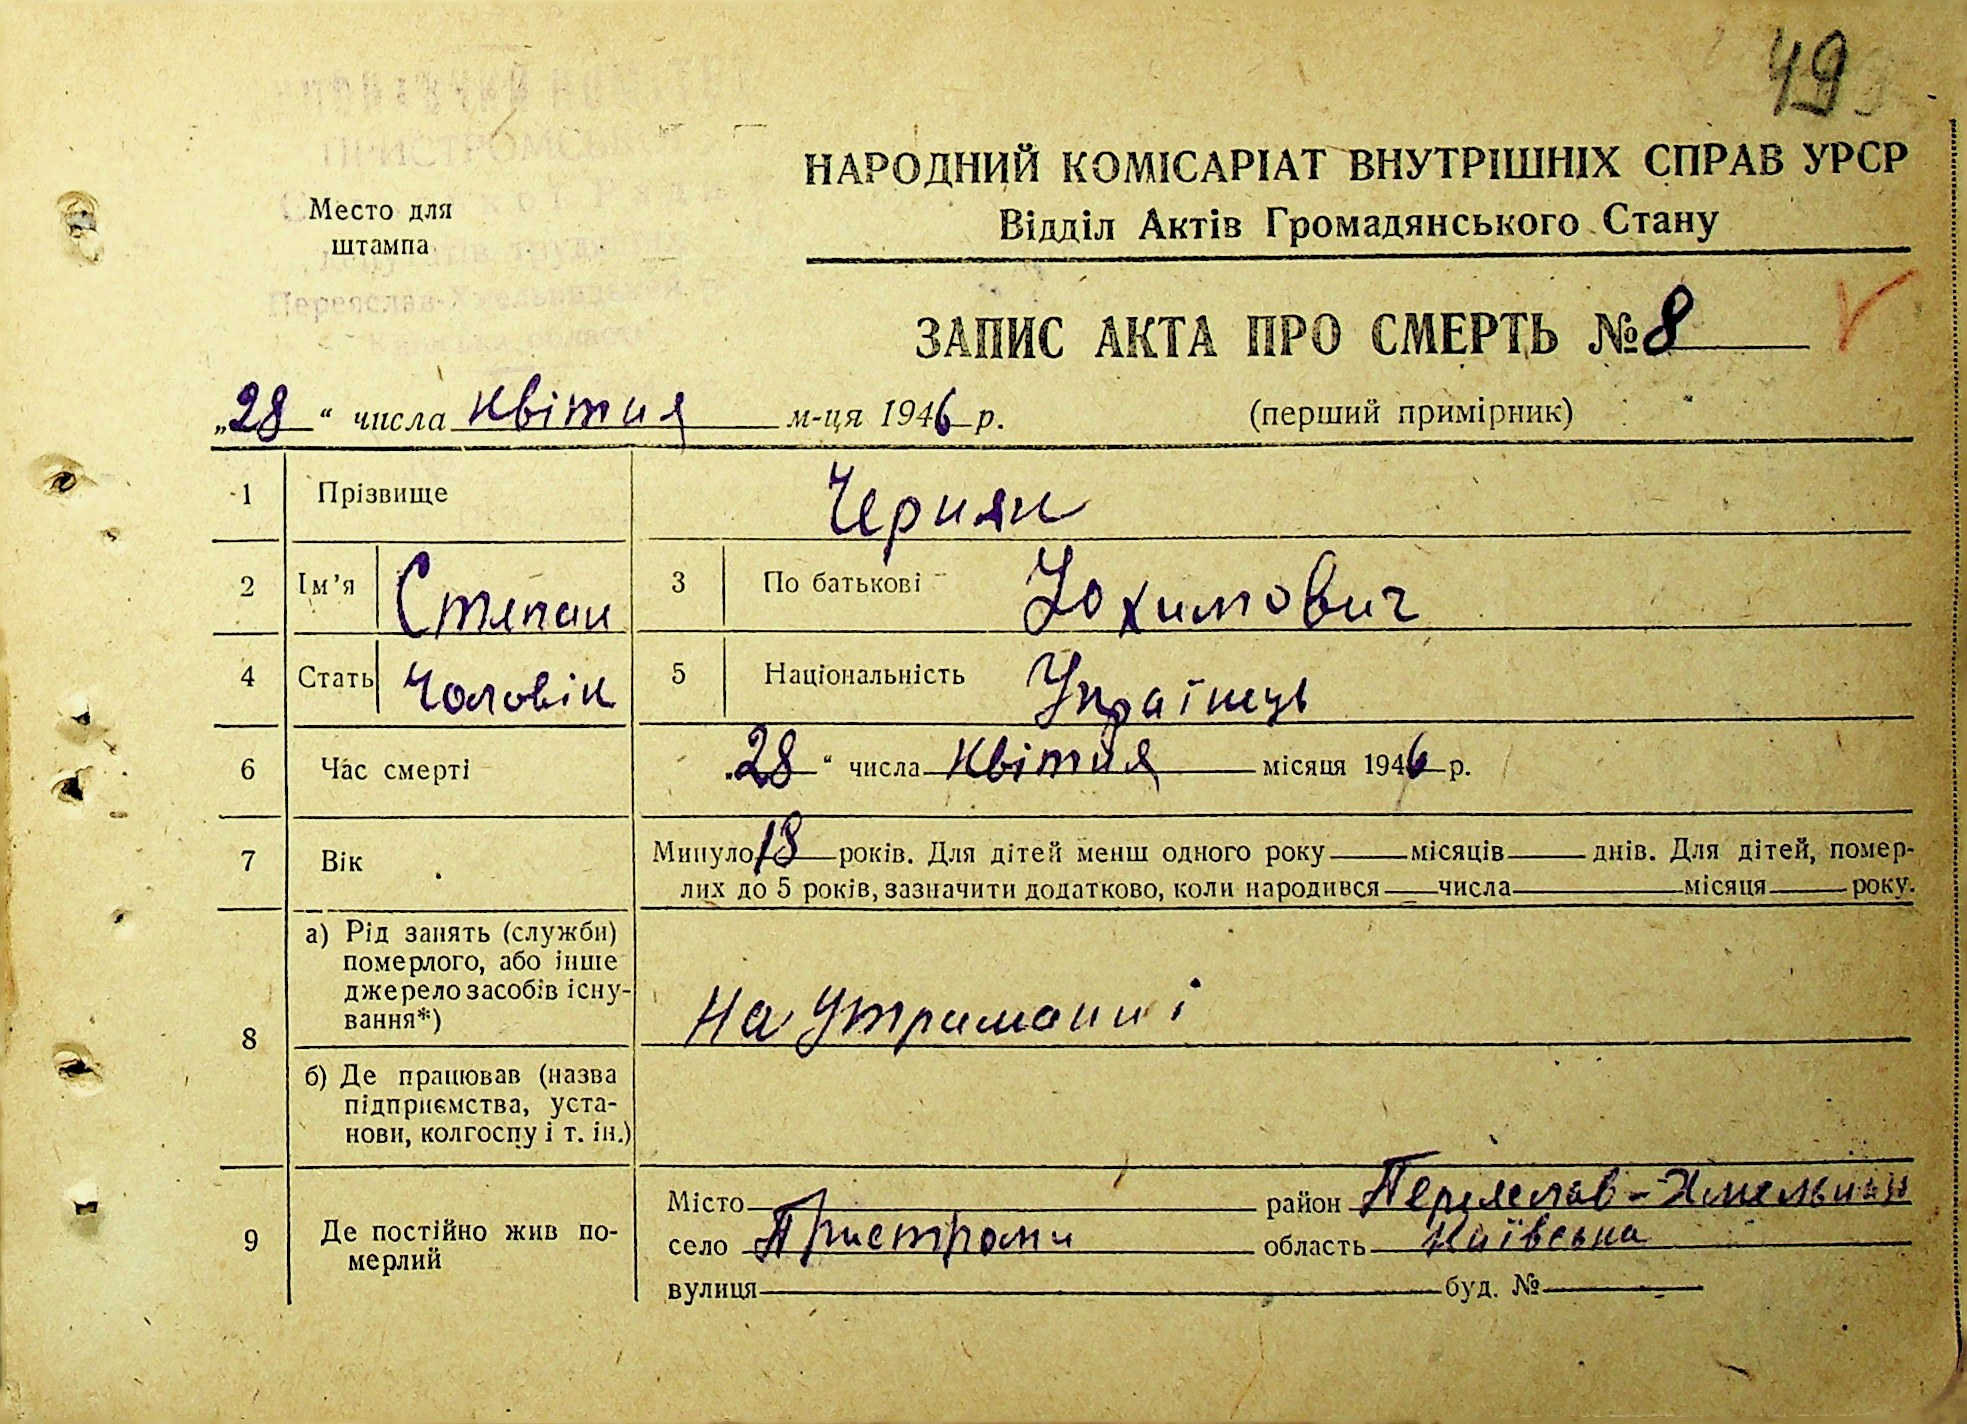 49
Место для
штампа
НАРОДНИЙ КОМІСАРІАТ ВНУТРІШНІХ СПРАВ УРСР
Відділ Актів Громадянського Стану
ПРИСТРОМСЬК
Переяслав-Хмельницький
ЗАПИС АКТА ПРО СМЕРТЬ № 8
„28“ числа квітня м-ця 1946 р. (перший примірник)
1 Прізвище Черняк
2 Ім’я Степан 3 По батькові Юхимович
4 Стать Чоловік 5 Національність Українець
6 Час смерті „28“ числа квітня місяця 1946 р.
7 Вік Минуло 18 років. Для дітей менш одного року місяців днів. Для дітей, помер-
лих до 5 років, зазначити додатково, коли народився числа місяця року.
8 а) Рід занять (служби)
померлого, або інше
джерело засобів існу-
вання*)
На утриманні
б) Де працював (назва
підприємства, уста-
нови, колгоспу і т. ін.)
9 Де постійно жив по-
мерлий
Місто район Переяслав-Хмельниц
село Пристроми область Київська
вулиця буд. №